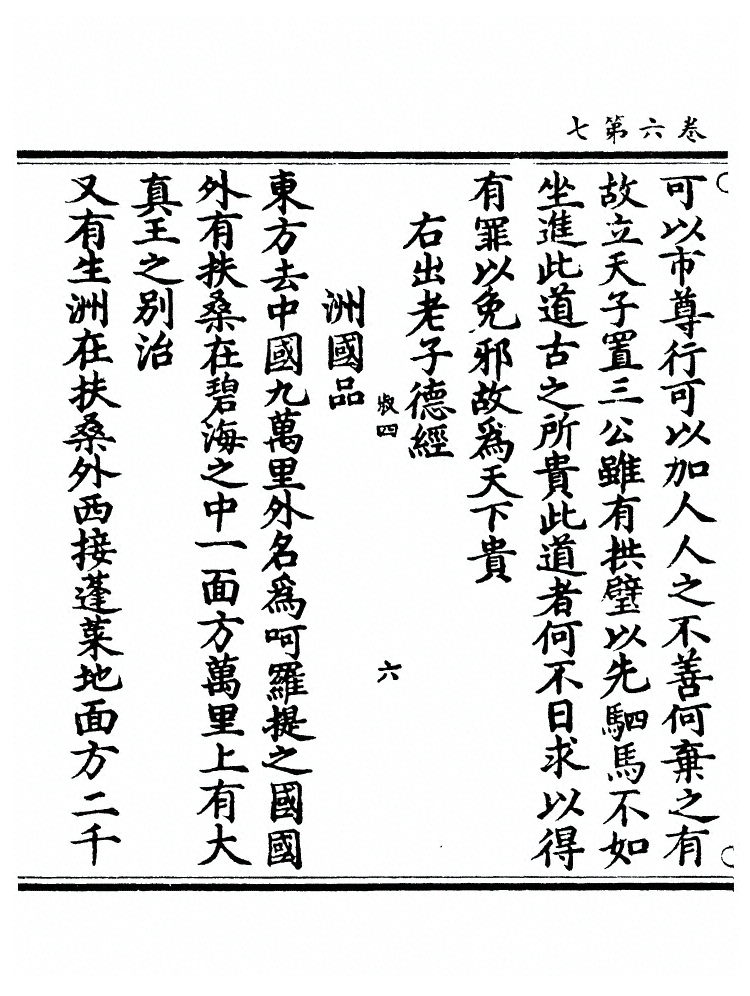 卷六第七
可以市尊行可以加人人之不善何棄之有
故立天子置三公雖有拱璧以先駟馬不如
坐進此道古之所貴此道者何不日求以得
有罪以免邪故爲天下貴
右出老子德經
叔四 六
洲國品
東方去中國九萬里外名爲呵羅提之國國
外有扶桑在碧海之中一面方萬里上有大
真王之別治
又有生洲在扶桑外西接蓬萊地面方二千